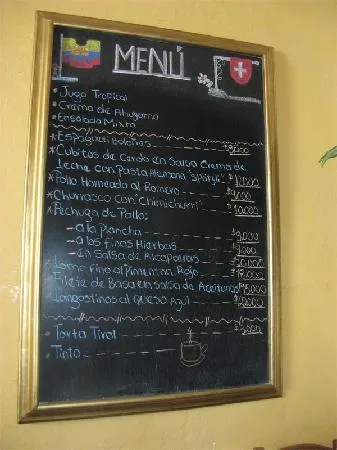 MENÚ
Jugo Tropical
Crema de Ahuyama
Ensalada Mixta
Espagueti Boloñes $8,000
Cubitos de Cerdo en Salsa Crema de
leche con Pasta Alemana "Spätzle" $12.000
Pollo Horneado al Romero $9,000
Churrasco con "Chimichurri" $10.000
Pechuga de Pollo:
- a la plancha $9,000
- a las finas Hierbas $9,000
- en Salsa de Alcaparras $10.000
Lomo fino al Pimenton Rojo $18.000
Filete de Basa en salsa de Aceitunas $15.000
Langostinos al Queso Azul $20.000
Torta Tirol $5,000
Tinto